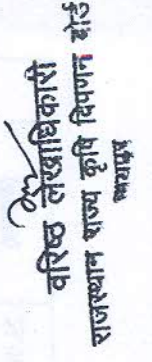 वरिष्ठ लेखाधिकारी
राजस्थान राज्य कृषि विपणन बोर्ड
जयपुर